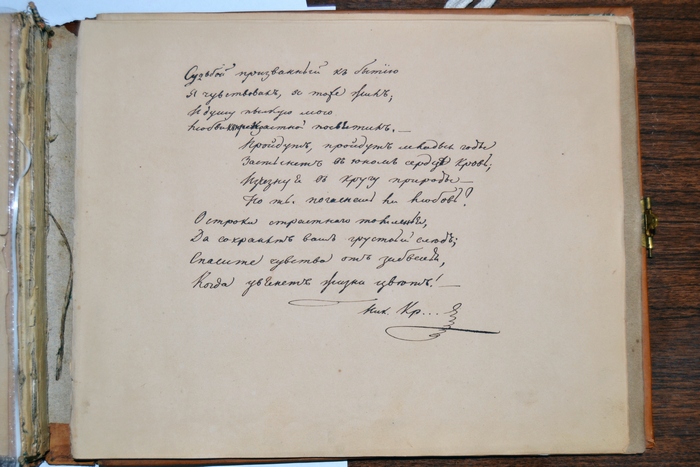 Судьбой призванный къ бытію
Я чувствовалъ, я тоже жилъ;
И душу пылкую мою
Любви посвятилъ. —
Пройдутъ, пройдутъ младыя годы
Застынетъ въ юномъ сердцѣ кровь;
Изчезну я въ кругу природы —
Но ты.. погаснешь ли любовь?!
О строки страстнаго томленья,
Да сохранитъ васъ грустный слѣдъ;
Спасите чувства отъ забвенья,
Когда увянетъ жизни цвѣтъ! —
Ник. Кр...